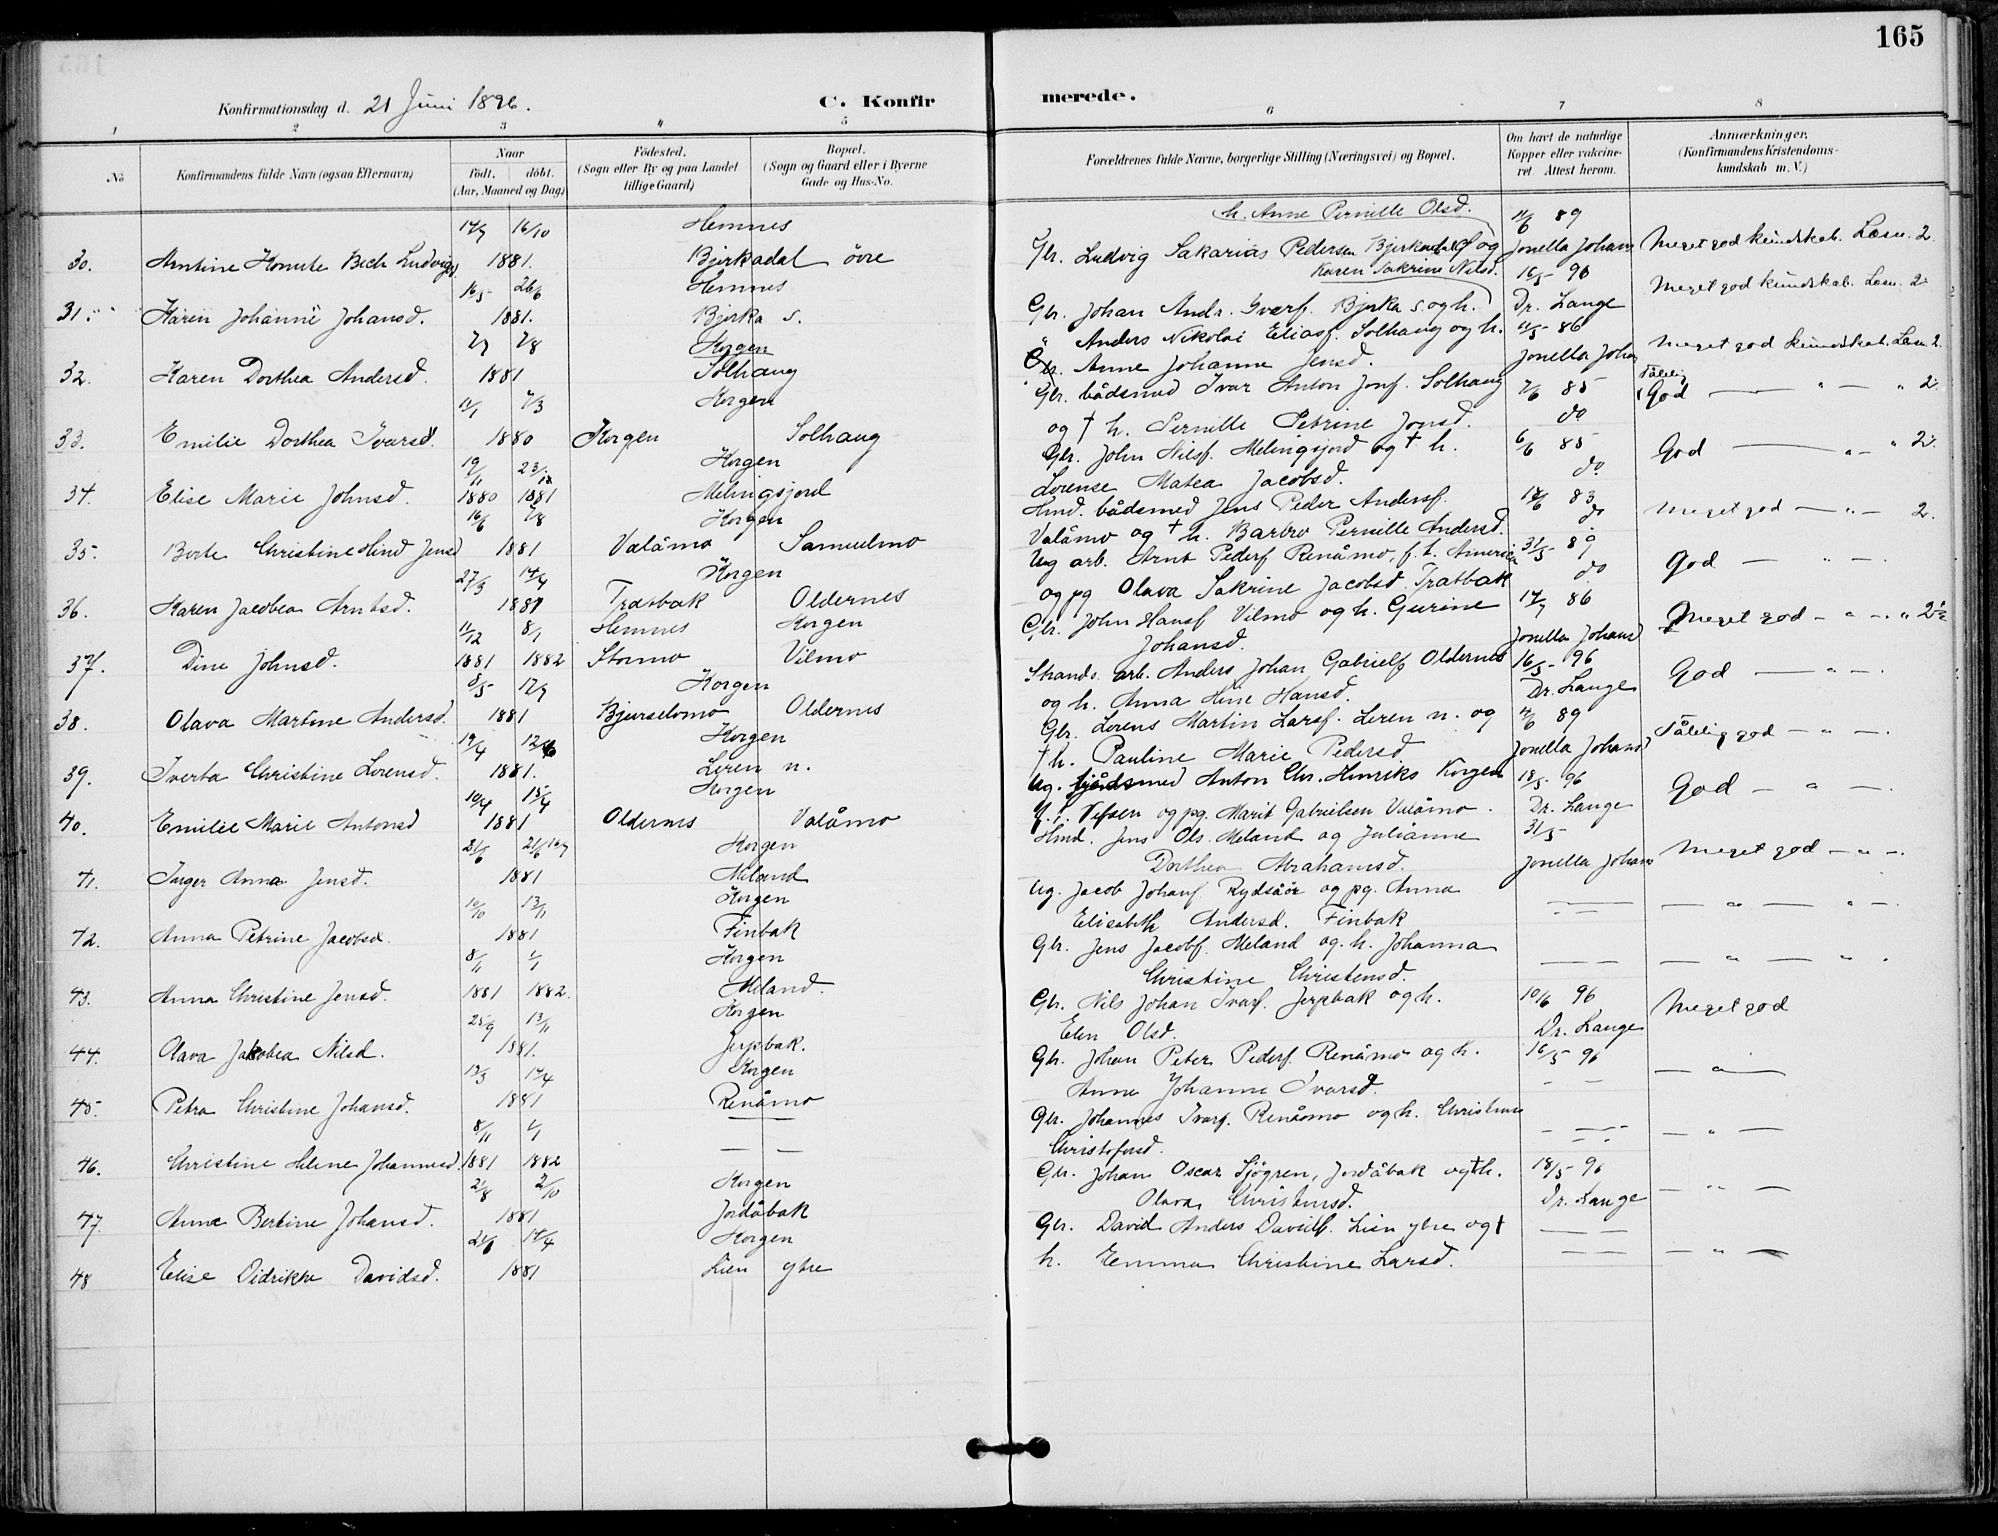 165
Konfirmationsdag d. 21 Juni 1896.
C. Konfir
merede.
1 2 3 4 5 6 7 8
No
Konfirmandens fulde Navn (ogsaa Efternavn)
Naar
födt. döbt.
(Aar, Maaned og Dag)
Födested.
(Sogn eller By og paa Landet
tillige Gaard)
Bopæl.
(Sogn og Gaard eller i Byerne
Gade og Hus-No.
Forældrenes fulde Navne, borgerlige Stilling (Næringsvei) og Bopæl.
Om havt de naturlige
Kopper eller vakcine-
ret Attest herom.
Anmærkninger.
(Konfirmandens Kristendoms-
kundskab m. V.)
16/10 Hemnes h. Anne Pernille Olsd. 89
30. Bech Ludvigsd 1881. Bjerkadal övre Gbr. Ludvig Sakarias Pedersen og Jonella Johans Meget god kundskab. Læsn. 2.
16/5 26/6 Hemnes Karen Sakrine Nilsd. 16/5 96
31. Karen Johanne Johansd. 1881. Bjerka s. Gbr. Johan Andr. Ivarf. Bjerka s. og h. Dr. Lange Meget god kundskab. Læsn. 2.
Korgen " Anders Nikolai Eliasf. Solhaug og h. 86
32. Karen Dorthea Andersd. 1881 Solhaug Anne Johanne Jensd. Jonella Joha Meget god kundskab. Læsn. 2.
Korgen Gbr. bådsmed Ivar Anton Jonf. Solhaug 85 Tålelig
33. Emilie Dorthea Ivarsd. 1880 Korgen Solhaug og † h. Pernille Petrine Jonsd. do God — " — " 2.
19/11 23/12 Korgen Gbr. John Nilsf. Melingsjord og † h. 6/6 85
34. Elise Marie Johnsd. 1880 1881 Melingsjord Lorense Matea Jacobsd. do God — " — " 2.
16/6 7/8 Korgen Hmd. bådsmed Jens Peder Andersf. 18/6 83
35. Berte Christine Hind Jensd 1881 Valåmo Samuelmo Valåmo og † h. Barbro Pernille Andersd. do Meget god — " — 2.
27/3 14/4 Korgen Ug arb. Arnt Pederf Renåmo, f. t. America 31/5 89
36. Karen Jacobea Arntsd. 1881 Tratbak Oldernes og pg Olava Sakrine Jacobsd Tratbak do God — " —
11/12 8/1 Hemnes Korgen Gbr. John Hansf Vilmo og h. Gurine 86
37. Dine Johnsd. 1881 1882 Stormo Vilmo Johansd. Jonella Johansd Meget god — " — " 2½
8/5 Korgen Strands. arb. Anders Johan Gabrielf Oldernes 16/5 96
38. Olava Martine Andersd. 1881 Bjurselvmo Oldernes og h. Anna Line Hansd. Dr. Lange God — " —
19/4 Korgen Gbr. Lorens Martin Larsf. Leren n. og 89
39. Iverta Christine Lorensd. 1881. Leren n. † h. Pauline Marie Pedersd Jonella Johansd Tålelig god — " —
10/4 15/4 Korgen Ug. Anton Chr. Henriks Korgen 18/5 96
40. Emilie Marie Antonsd 1881 Oldernes Valåmo Vefsen og pg. Marit Gabrielsen Valåmo. Dr. Lange God — " —
21/6 Korgen Hmd. Jens Ols. Meland og Julianne 31/5
41. Inger Anna Jensd. 1881 Meland Dorthea Abrahamsd. Jonella Johans Meget god — " —
10/10 13/11 Korgen Ug. Jacob Johanf Rydsåör og pg. Anna
42. Anna Petrine Jacobsd. 1881 Finbak Elisabeth Andersd. Finbak — — — " — " —
8/11 1/1 Korgen Gbr. Jens Jacobf. Meland og. h. Johanna
43. Anna Christine Jensd. 1881 1882. Meland. Christine Christensd. — — — " — " .
25/9 13/11 Korgen Gbr. Nils Johan Ivarf. Jerpbak og h. 10/6 96
44. Olava Jakobea Nilsd. 1881. Jerpbak. Elen Olsd. Dr. Lange Meget god
12/3 14/4 Korgen Gbr. Johan Peter Pederf Renåmo og h. 16/5 96
45. Petra Christine Johansd. 1881 Renåmo Anne Johanne Ivarsd. — — — " —
8/11 1/1 Gbr. Johannes Ivarf. Renåmo og h. Christine
46. Christine Helene Johannesd. 1881 1882 — — Christofersd. — — — " —
21/8 2/10 Korgen Gbr. Johan Oscar Sjögren, Jordåbak og † h. 18/5 96
47. Anna Bertine Johansd. 1881 Jordåbak Olava Christensd. Dr. Lange — " —
14/4 Korgen Gbr. David Anders Davidf. Lien ytre og †
48 Elise Didrikke Davidsd. 1881 Lien ytre h. Emma Christine Larsd. — — — " —